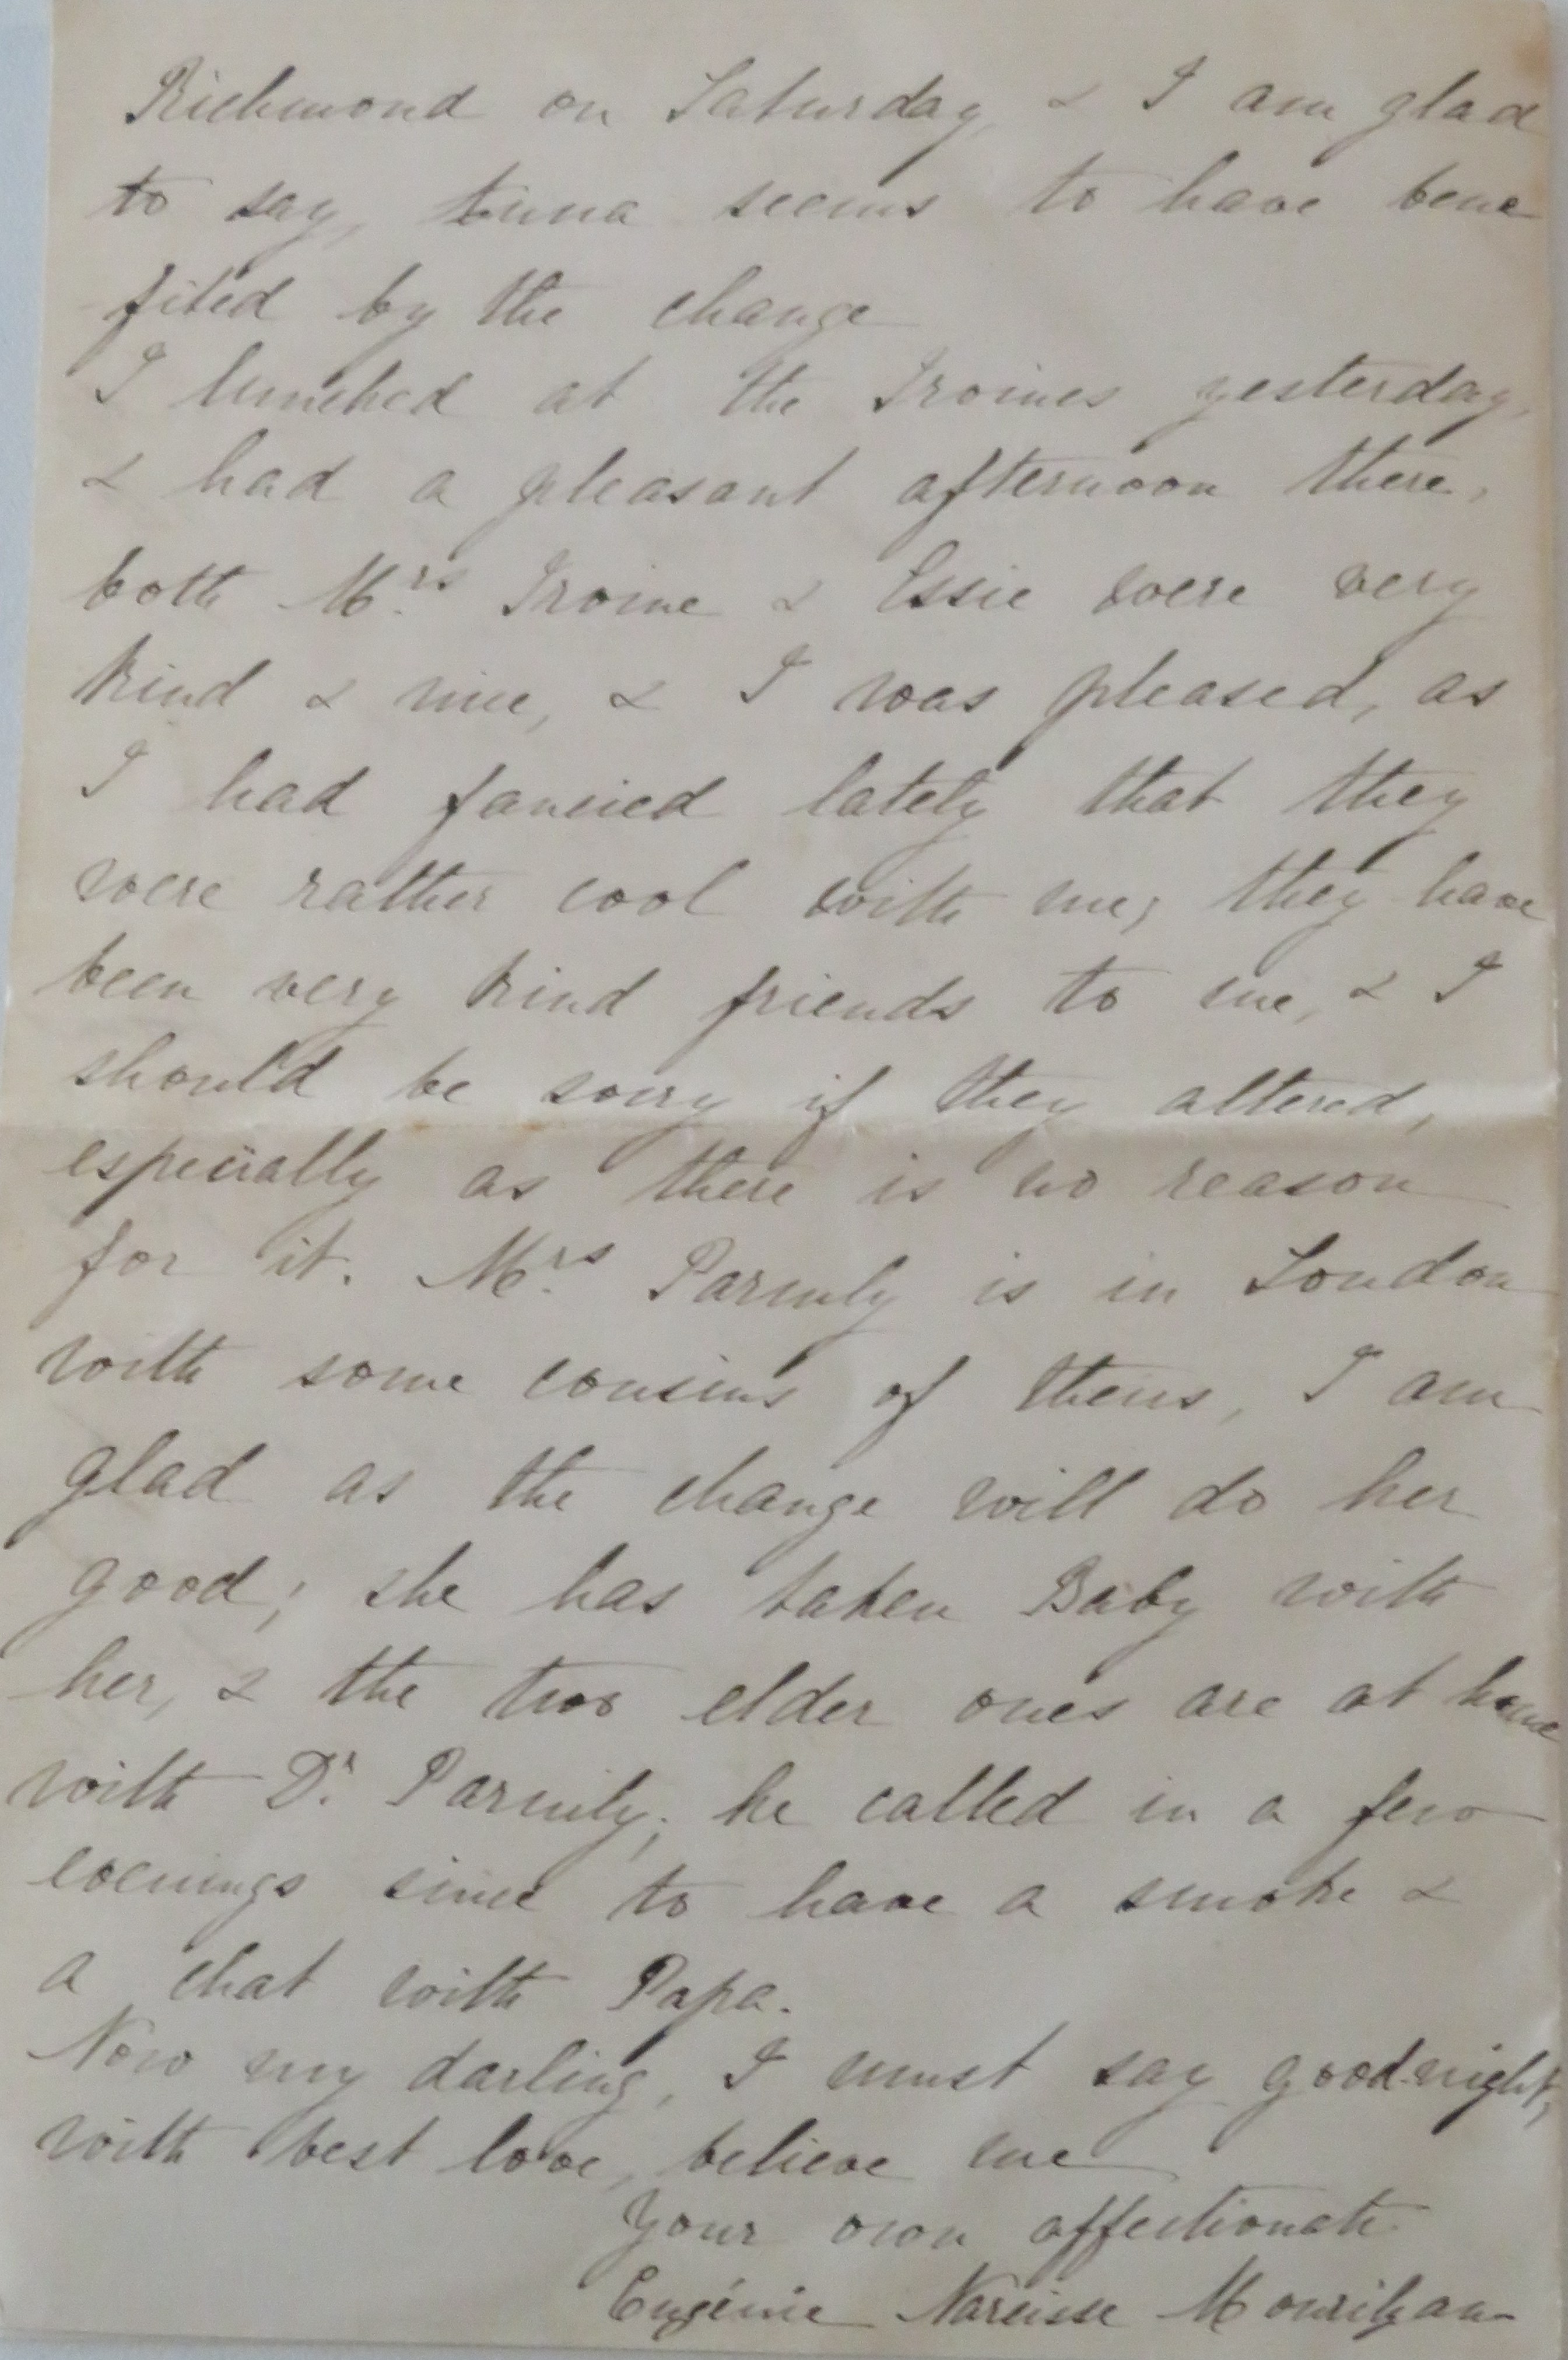 Richmond on Saturday, & I am glad
to say, Emma seems to have bene
fited by the change
I lunched at the Irvines yesterday,
& had a pleasant afternoon there,
both Mrs Irvine & Essie were very
kind & nice, & I was pleased, as
I had fancied lately that they
were rather cool with me; they have
been very kind friends to me, & I
should be sorry if they altered,
especially as there is no reason
for it. Mrs Parmly is in London
with some cousins of theirs, I am
glad as the change will do her
good; she has taken Baby with
her, & the two elder ones are at home
with Dr. Parmly; he called in a few
evenings since to have a smoke &
a chat with Papa.
Now my darling, I must say good-night,
with best love, believe me
Your own affectionate
Eugénie Narcisse